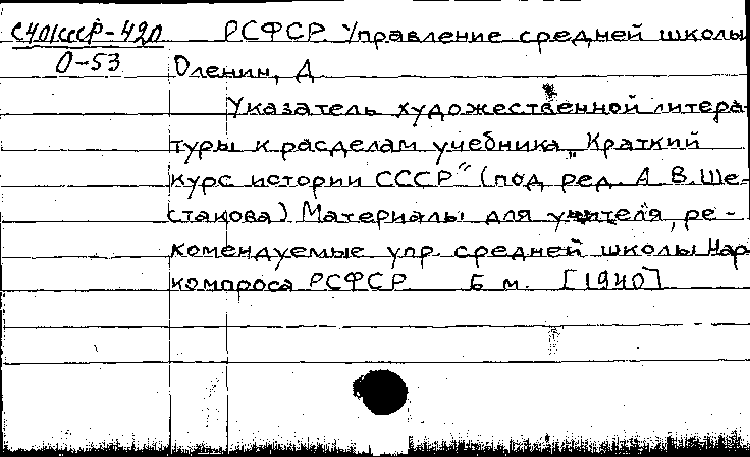 С40/СССР-420 РСФСР. Управление средней школы
О-53 Оленин, Д.
Указатель художественной литера-
туры к расделам учебника „Краткий
курс истории СССР" (под ред. А. В. Ше-
стакова) Материалы для учителя, ре-
комендуемые упр. средней школы Нар-
компроса РСФСР Б. м. [1940]